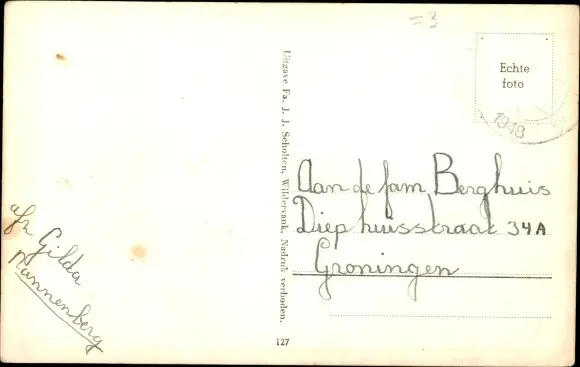 =3
Echte
foto
1948
Uitgave Fa. J. J. Scholten, Wildervank. Nadruk verboden.
Aan de fam Berghuis
Diephuisstraat 34A
Groningen
afz Gilda
Nannenberg
127